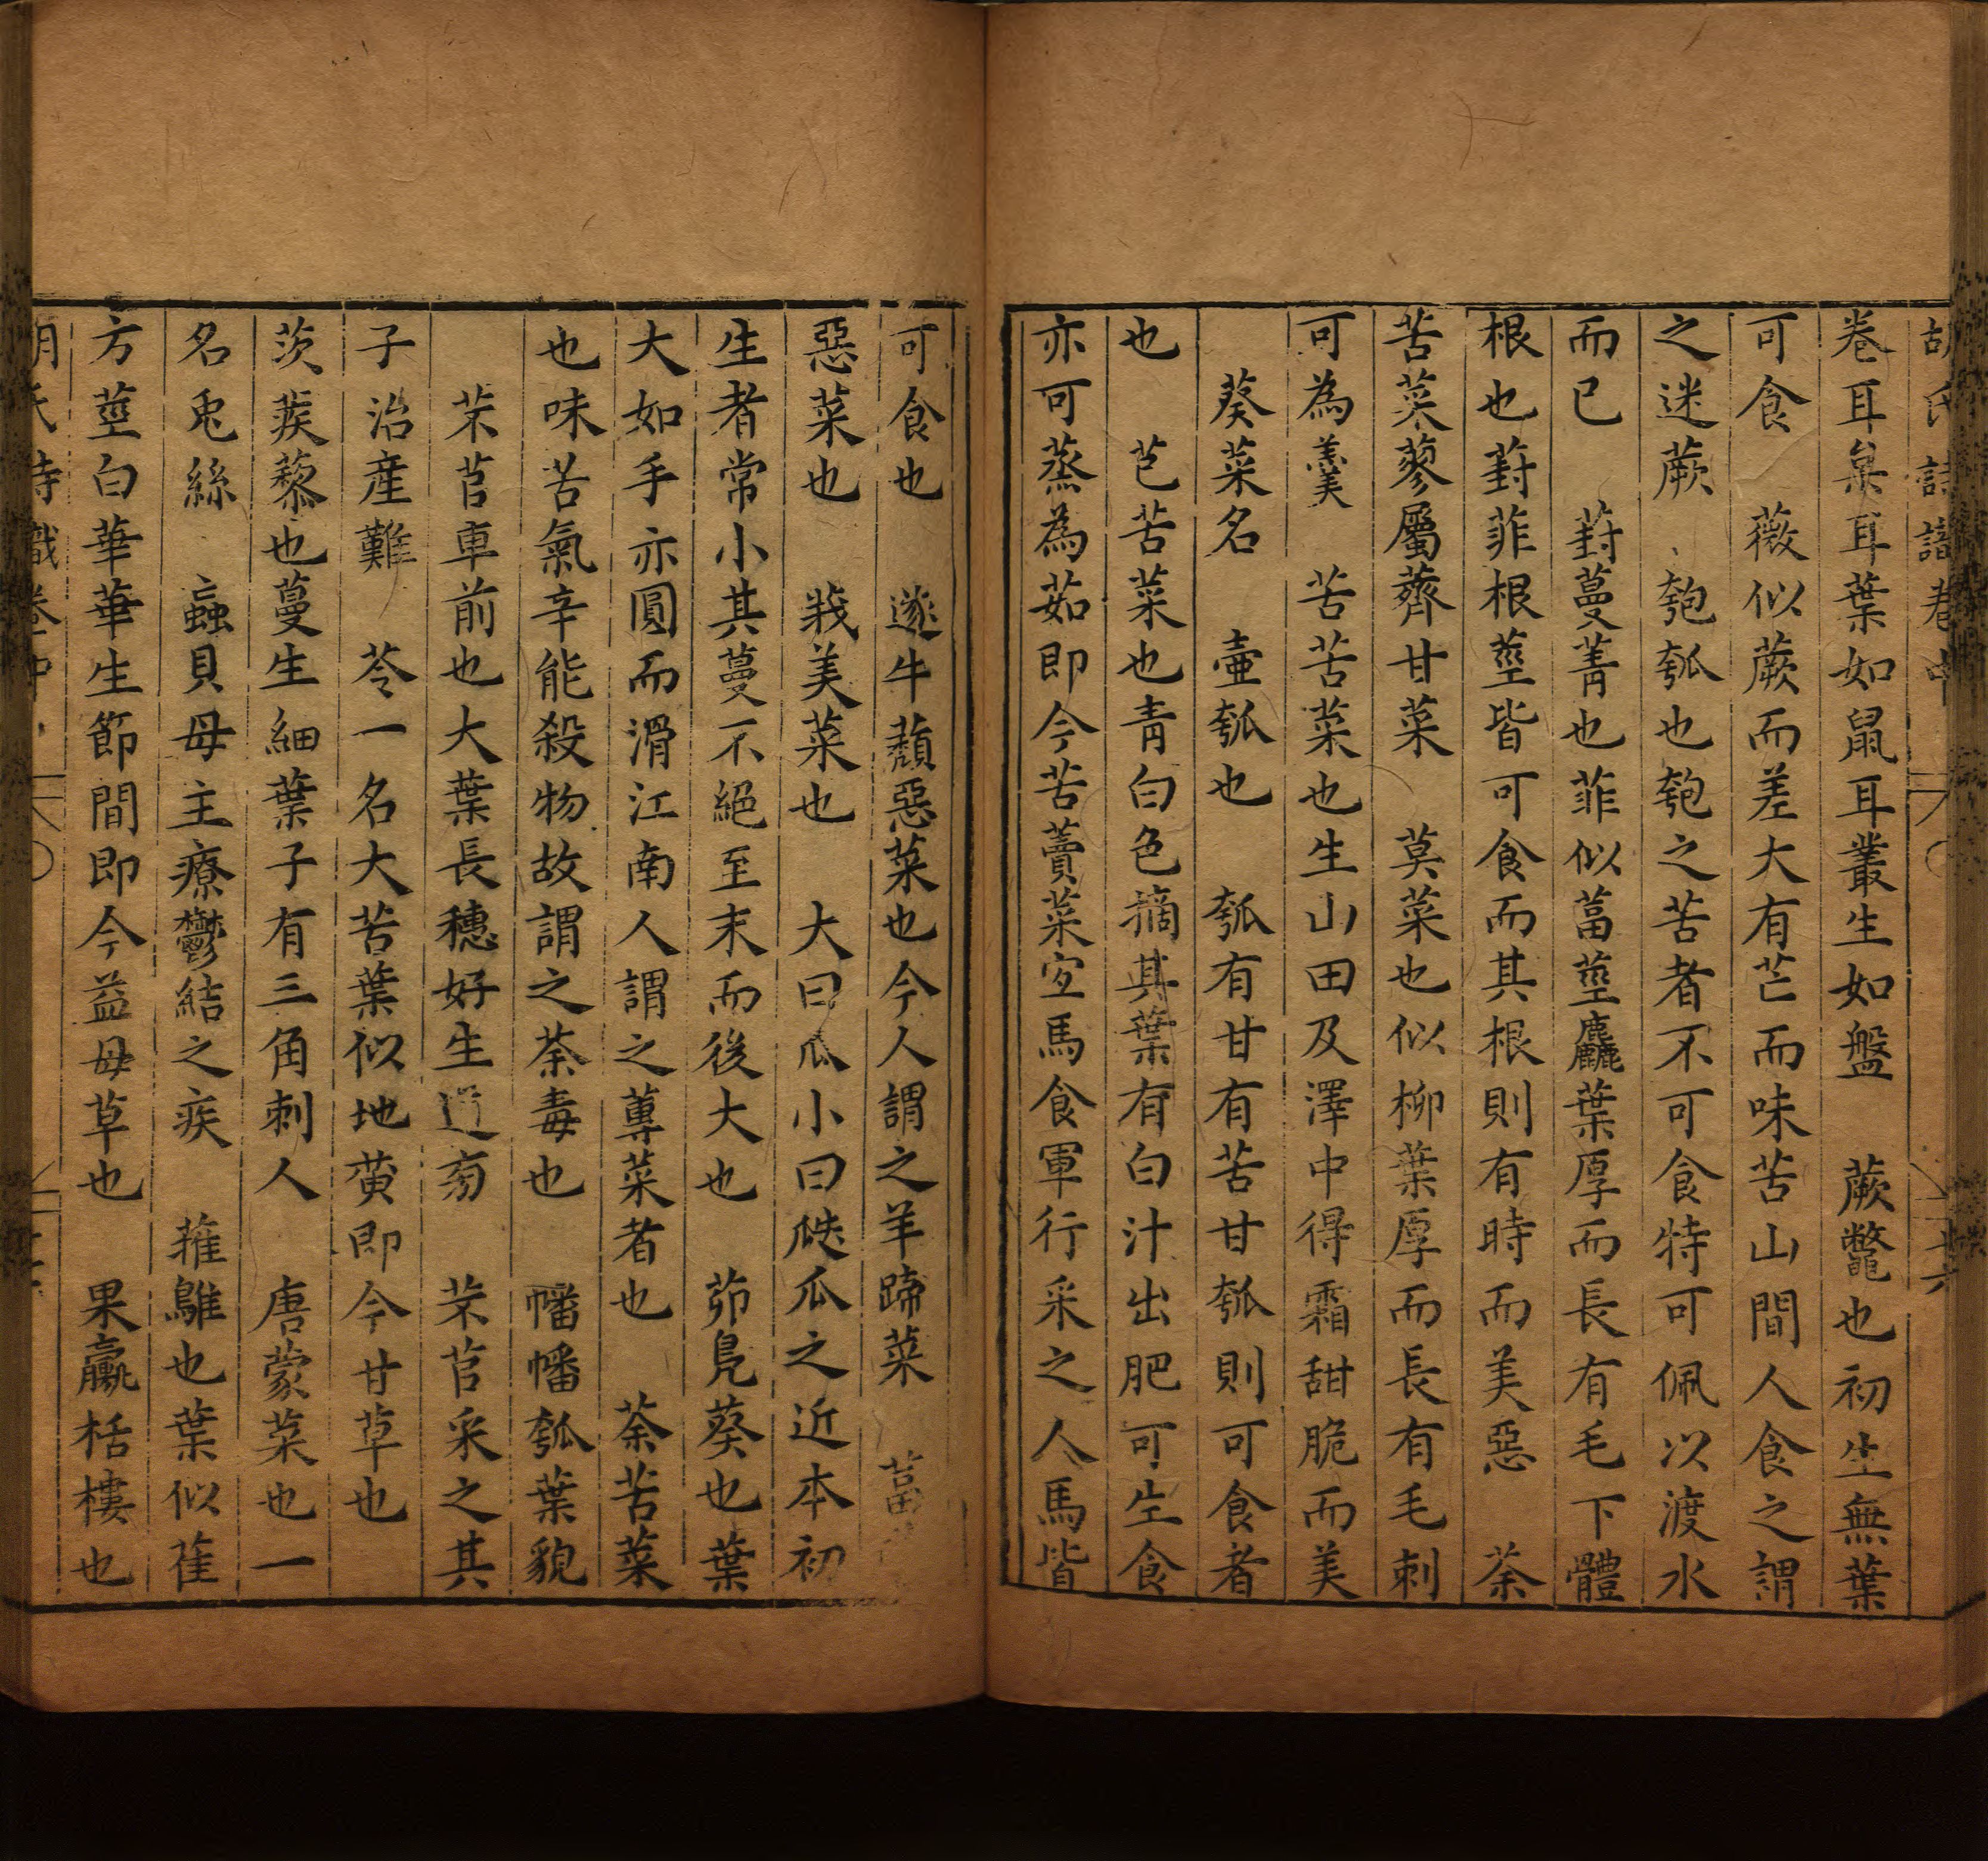 胡氏詩識卷中 十六
卷耳枲耳葉如鼠耳叢生如盤 蕨鼈也初生無葉
可食 薇似蕨而差大有芒而味苦山間人食之謂
之迷蕨 匏瓠也匏之苦者不可食特可佩以渡水
而已 葑蔓菁也菲似葍莖麤葉厚而長有毛下體
根也葑菲根莖皆可食而其根則有時而美惡 荼
苦菜蓼屬薺甘菜 莫菜也似柳葉厚而長有毛刺
可為羹 苦苦菜也生山田及澤中得霜甜脆而美
葵菜名 壷瓠也 瓠有甘有苦甘瓠則可食者
也 芑苦菜也青白色摘其葉有白汁出肥可生食
亦可蒸為茹即今苦蕒菜宜馬食軍行采之人馬皆
可食也 蓫牛蘈惡菜也今人謂之羊蹄菜 葍
惡菜也 莪美菜也 大曰瓜小曰瓞瓜之近本初
生者常小其蔓不絕至末而後大也 茆鳧葵也葉
大如手亦圓而滑江南人謂之蓴菜者也 荼苦菜
也味苦氣辛能殺物故謂之荼毒也 幡幡瓠葉貌
芣苢車前也大葉長穗好生道旁 芣苢采之其
子治產難 苓一名大苦葉似地黄即今甘草也
茨蒺藜也蔓生細葉子有三角刺人 唐蒙菜也一
名兎絲 蝱貝母主療鬱結之疾 蓷鵻也葉似萑
方莖白華華生節間即今益母草也 果臝栝樓也
胡氏詩識卷中